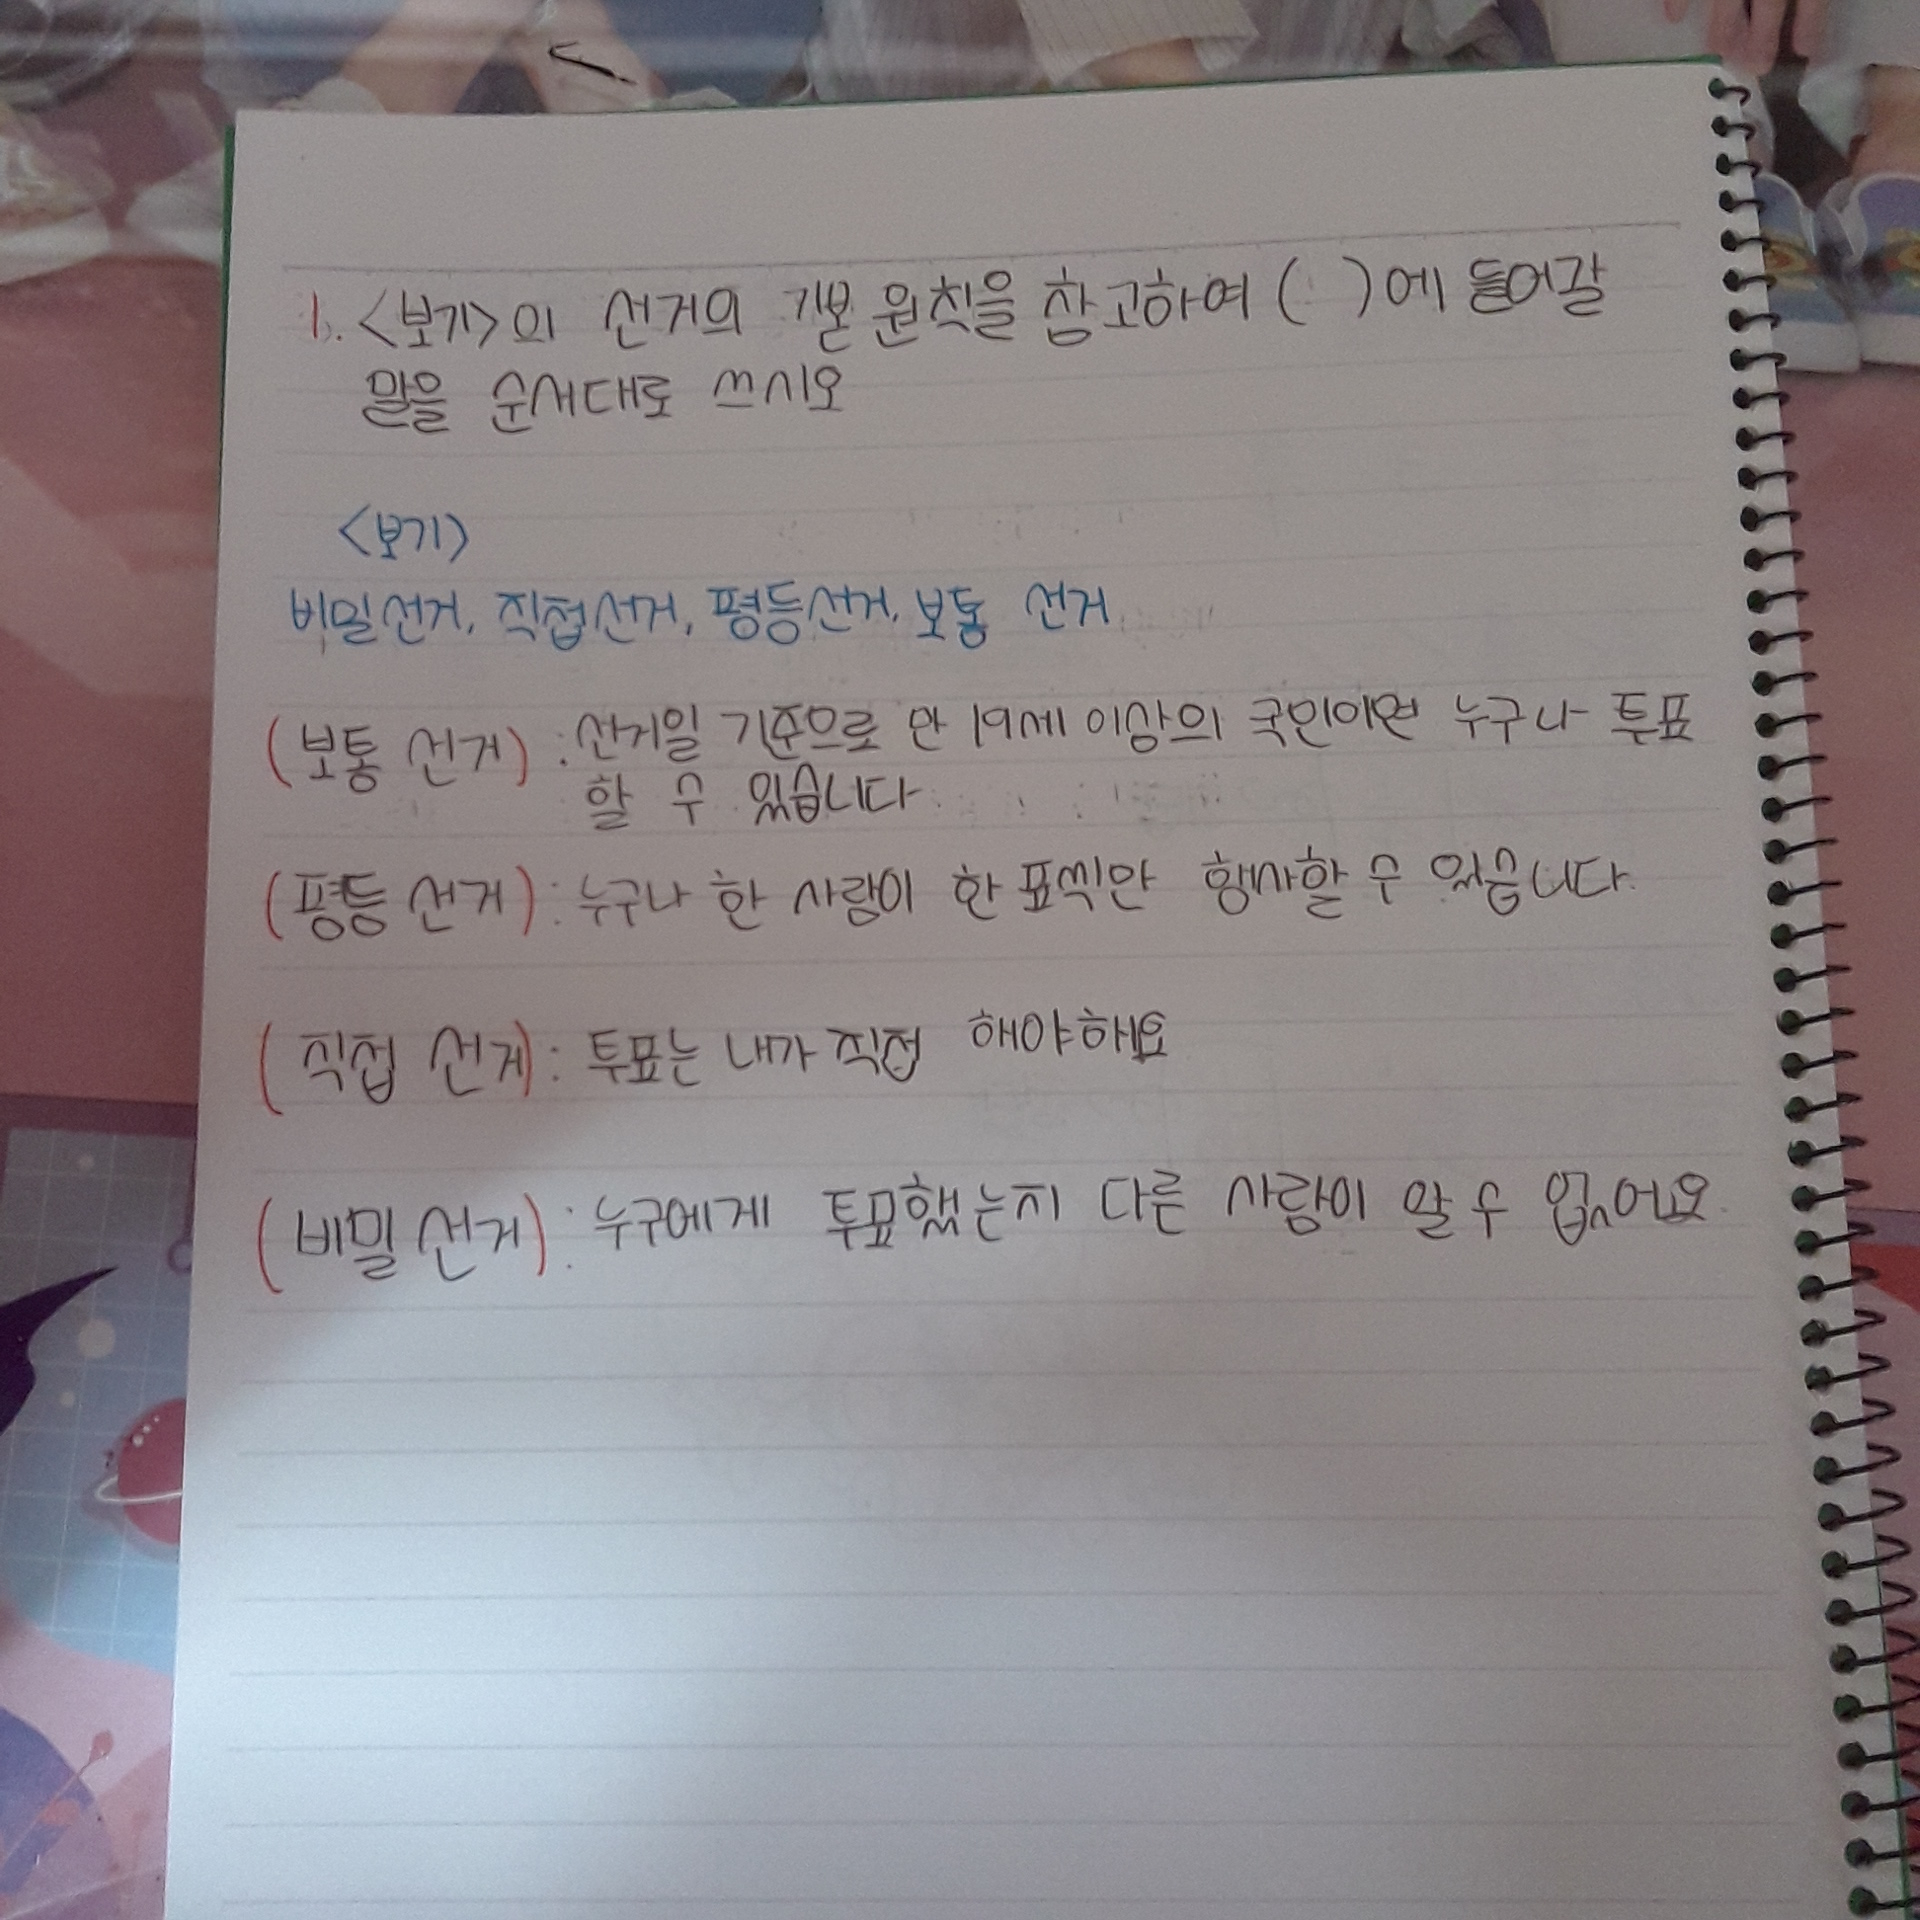 1. <보기>의 선거의 기본 원칙을 참고하여 ( )에 들어갈
말을 순서대로 쓰시오
<보기>
비밀선거, 직접선거, 평등선거, 보통 선거
(보통 선거) : 선거일 기준으로 만 19세 이상의 국민이면 누구나 투표
할 수 있습니다
(평등 선거) : 누구나 한 사람이 한 표씩만 행사할 수 있습니다.
(직접 선거) : 투표는 내가 직접 해야해요
(비밀 선거) : 누구에게 투표했는지 다른 사람이 알 수 없어요.